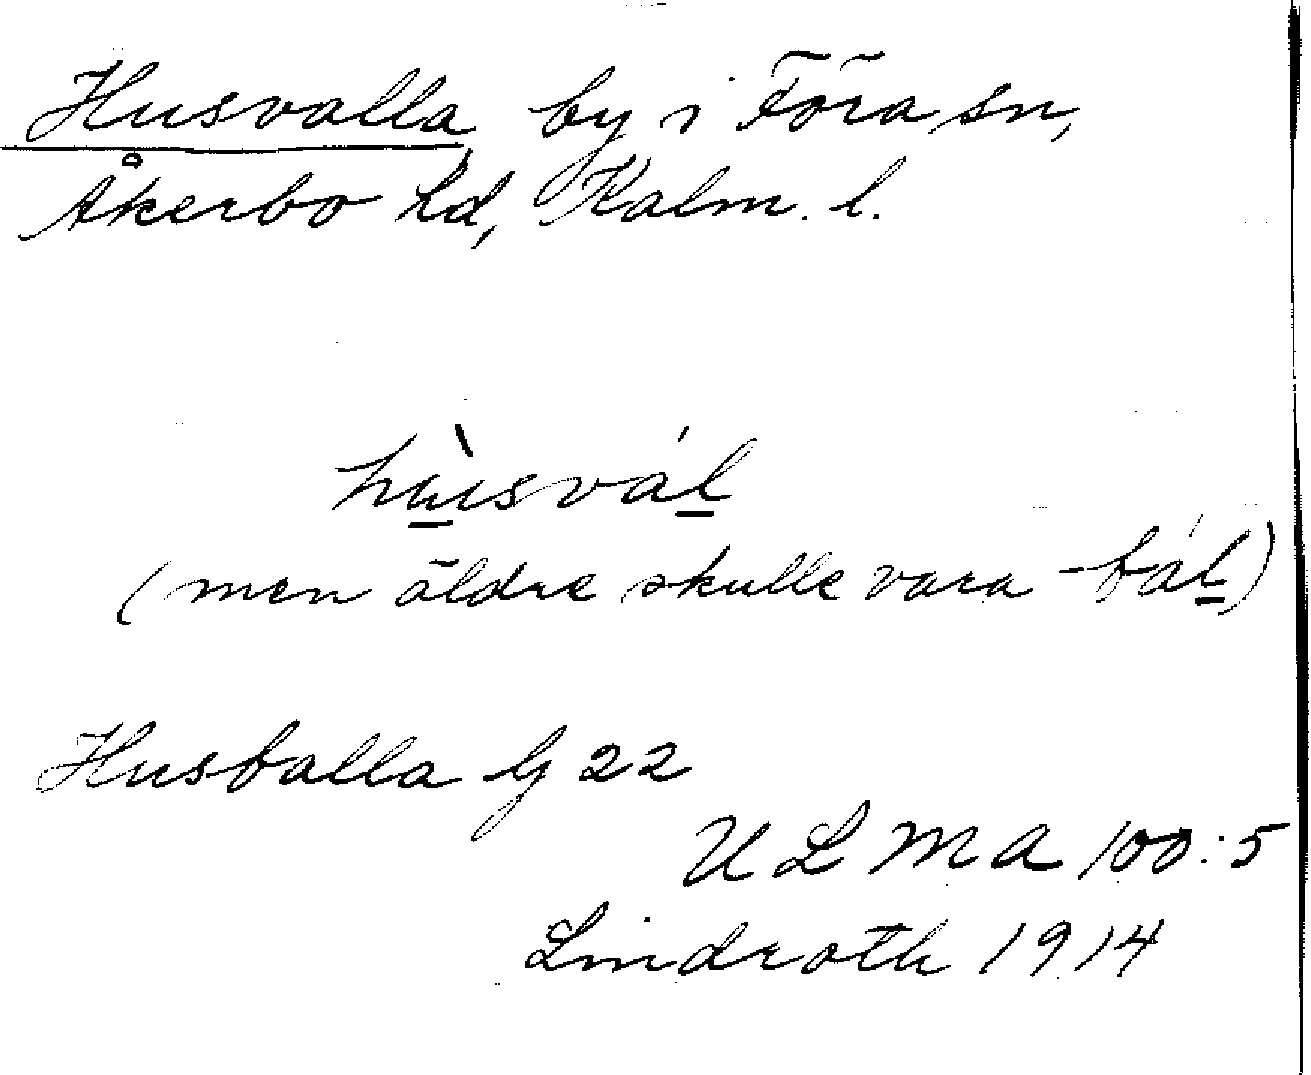 Husvalla by i Föra sn,
Åkerbo hd, Kalm. l.
hùsvál
(men äldre skulle vara -bál)
Husballa G 22
ULMA 100:5
Lindroth 1914